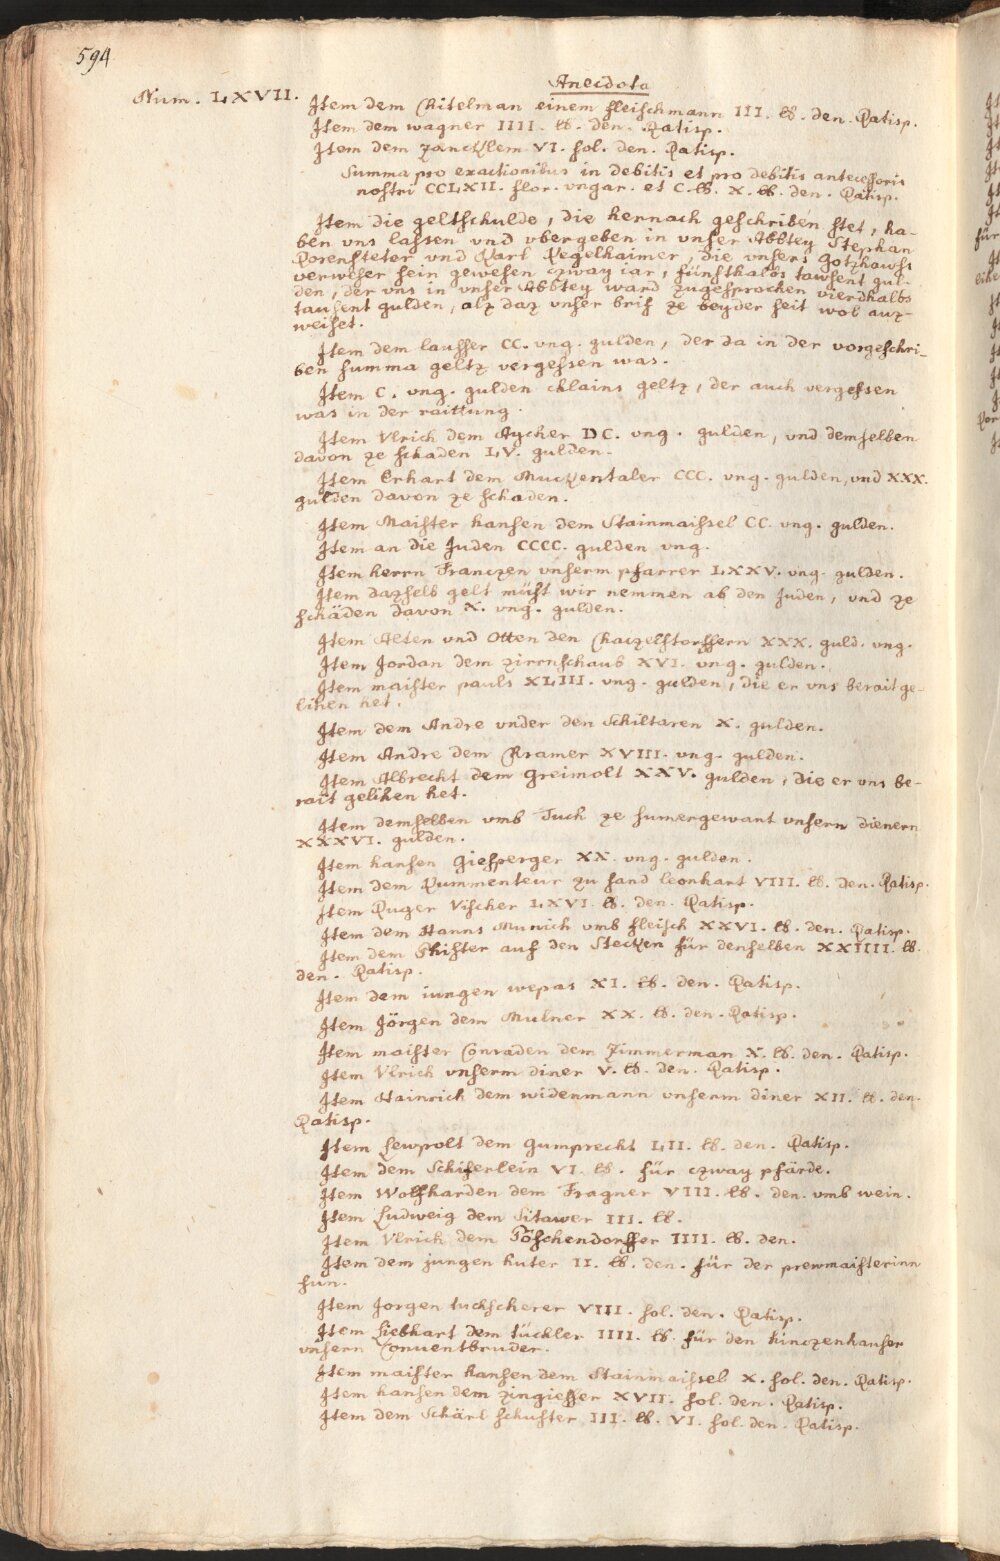 594
Anecdota
Num. LXVII.
Item dem Chitelman einem fleischmann III. lb. den. Ratisp.
Item dem wagner IIII. lb. den. Ratisp.
Item dem zäncklem VI. sol. den. Ratisp.
Summa pro exactionibus in debitis et pro debitis antecessoris
nostri CCLXII. flor. vngar. et C. lb. X. lb. den. Ratisp.
Item die geltschulde, die hernach geschriben stet, ha-
ben vns lassen vnd vbergeben in vnser Abbtey Stephan
Rorensteter vnd Karl Pegelhaimer, die vnsers gotzhawss
verweser sein gewesen czway iar, fünfthalbs tawsent gul-
den, der vns in vnser Abbtey ward zugesprochen vierdhalbs
tausent gulden, alz daz vnser brif ze beyder seit wol auz-
weiset.
Item dem lausser CC. vng. gulden, der da in der vorgeschri-
ben summa geltz vergessen was.
Item C. vng. gulden cklains geltz, der auch vergessen
was in der raittung.
Item Vlrich dem Aycher DC. vng. gulden, vnd demselben
davon ze schaden LV. gulden.
Item Erhart dem Muckentaler CCC. vng. gulden, vnd XXX.
gulden davon ze schaden.
Item Maister hansen dem Stainmaissel CC. vng. gulden.
Item an die Juden CCCC. gulden vng.
Item herrn Franczen vnserm pfarrer LXXV. vng. gulden.
Item dazselb gelt müst wir nemmen ab den Juden, vnd ze
schäden davon X. vng. gulden.
Item Alten vnd Otten den Chaczelstorffern XXX. guld. vng.
Item Jordan dem zirrnschaub XVI. vng. gulden.
Item maister pauls XLIII. vng. gulden, die er vns berait ge-
lihen het.
Item dem Andre vnder den Schiltaren X. gulden.
Item Andre dem Kramer XVIII. vng. gulden.
Item Albrecht dem Greimolt XXV. gulden, die er vns be-
rait gelihen het.
Item demselben vmb Tuch ze sumergewant vnsern dienern
XXXVI. gulden.
Item hansen Giesperger XX. vng. gulden.
Item dem Kummenteur zu sand leonhart VIII. lb. den. Ratisp.
Item Ruger Vischer LXVI. lb. den. Ratisp.
Item dem Hanns Munich vmb fleisch XXVI. lb. den. Ratisp.
Item dem Phister auf den Stecken für denselben XXIIII. lb.
den. Ratisp.
Item dem iungen wepas XI. lb. den. Ratisp.
Item Jörgen dem Mulner XX. lb. den. Ratisp.
Item maister Conraden dem Zimmerman X. lb. den. Ratisp.
Item Vlrich vnserm diner V. lb. den. Ratisp.
Item Hainrich dem widenmann vnserm diner XII. lb. den.
Ratisp.
Item Lewpolt dem Gumprecht LII. lb. den. Ratisp.
Item dem Schiferlein VI. lb. für czway pfärde.
Item Wolfharden dem Fragner VIII. lb. den. vmb wein.
Item Ludweig dem Sitawer III. lb.
Item Vlrich dem Töschendorffer IIII. lb. den.
Item dem jungen huter II. lb. den. für der prewmaisterinn
sun.
Item Jorgen tuchscherer VIII. sol. den. Ratisp.
Item Liebhart dem tückler IIII. lb. für den hinczenhauser
vnsern Conventbruder.
Item maister hansen dem Stainmaissel X. sol. den. Ratisp.
Item hansen dem zingiesser XVII. sol. den. Ratisp.
Item dem Schärl schuster III. lb. VI. sol. den. Ratisp.